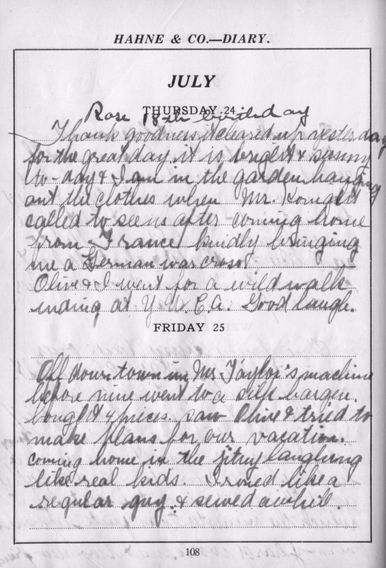 HAHNE & CO.—DIARY.
JULY
THURSDAY 24
Rose 18th birthday
Thank goodness it cleared up yesterday
for the great day. it is bright & sunny
to-day & I am in the garden hanging
out the clothes when Mr.
called to see us after coming home
from France kindly bringing
me a German war cross!
Olive & I went for a wild walk
ending at Y.W.C.A. Good laugh.
FRIDAY 25
Off down town in Mrs Taylor's machine
before nine went to a silk bargen.
bought 4 pieces. saw Olive & tried to
make plans for our vacation.
coming home in the jitney laughing
like real kids. I
regular guy. & sewed awhile.
108